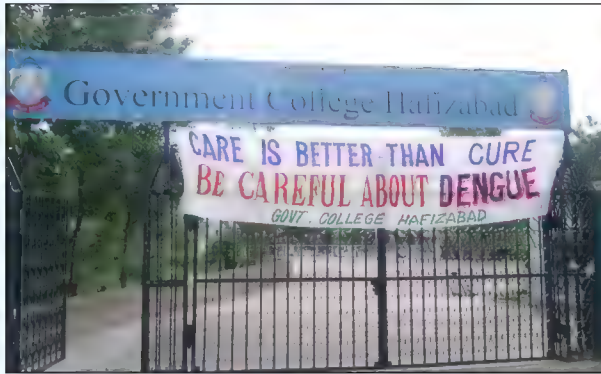 Government College Hafizabad
CARE IS BETTER THAN CURE
BE CAREFUL ABOUT DENGUE
GOVT. COLLEGE HAFIZABAD